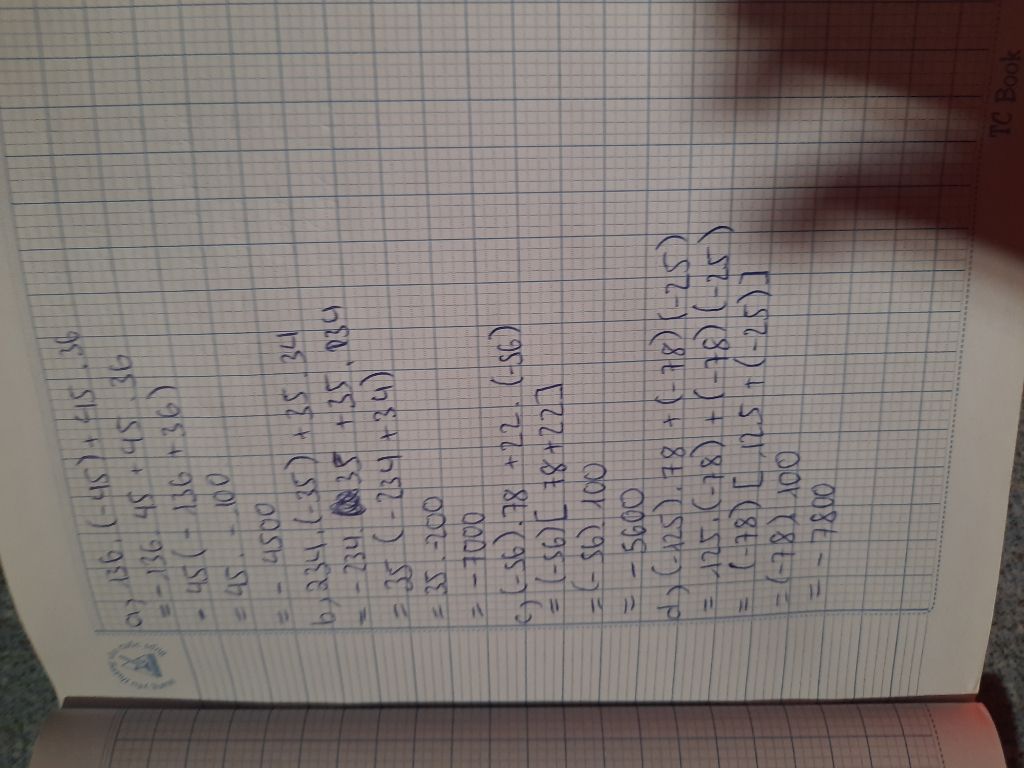 a) 136 . (-45) + 45 . 36
= - 136 . 45 + 45 . 36
= 45 (- 136 + 36)
= 45 . - 100
= - 4500
b) 234 . (-35) + 35 . 34
= - 234 . 35 + 35 . 234
= 35 (- 234 + 34)
= 35 . -200
= - 7000
c) (-56) . 78 + 22 . (-56)
= (-56) [ 78 + 22 ]
= (- 56) . 100
= - 5600
d) (-125) . 78 + (-78) (-25)
= 125 . (-78) + (-78) (-25)
= (-78) [ 125 + (-25) ]
= (-78) . 100
= - 7800
TC Book